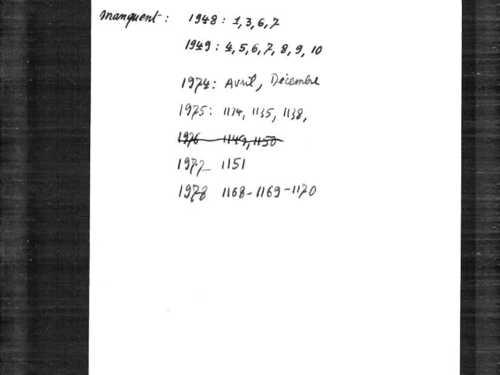 manquent : 1948 : 1,3,6,7
1949 : 4,5,6,7,8,9,10
1974 : Avril, Décembre
1975 : 1134, 1135, 1138,
1976 1149, 1150
1977 1151
1978 1168-1169-1170